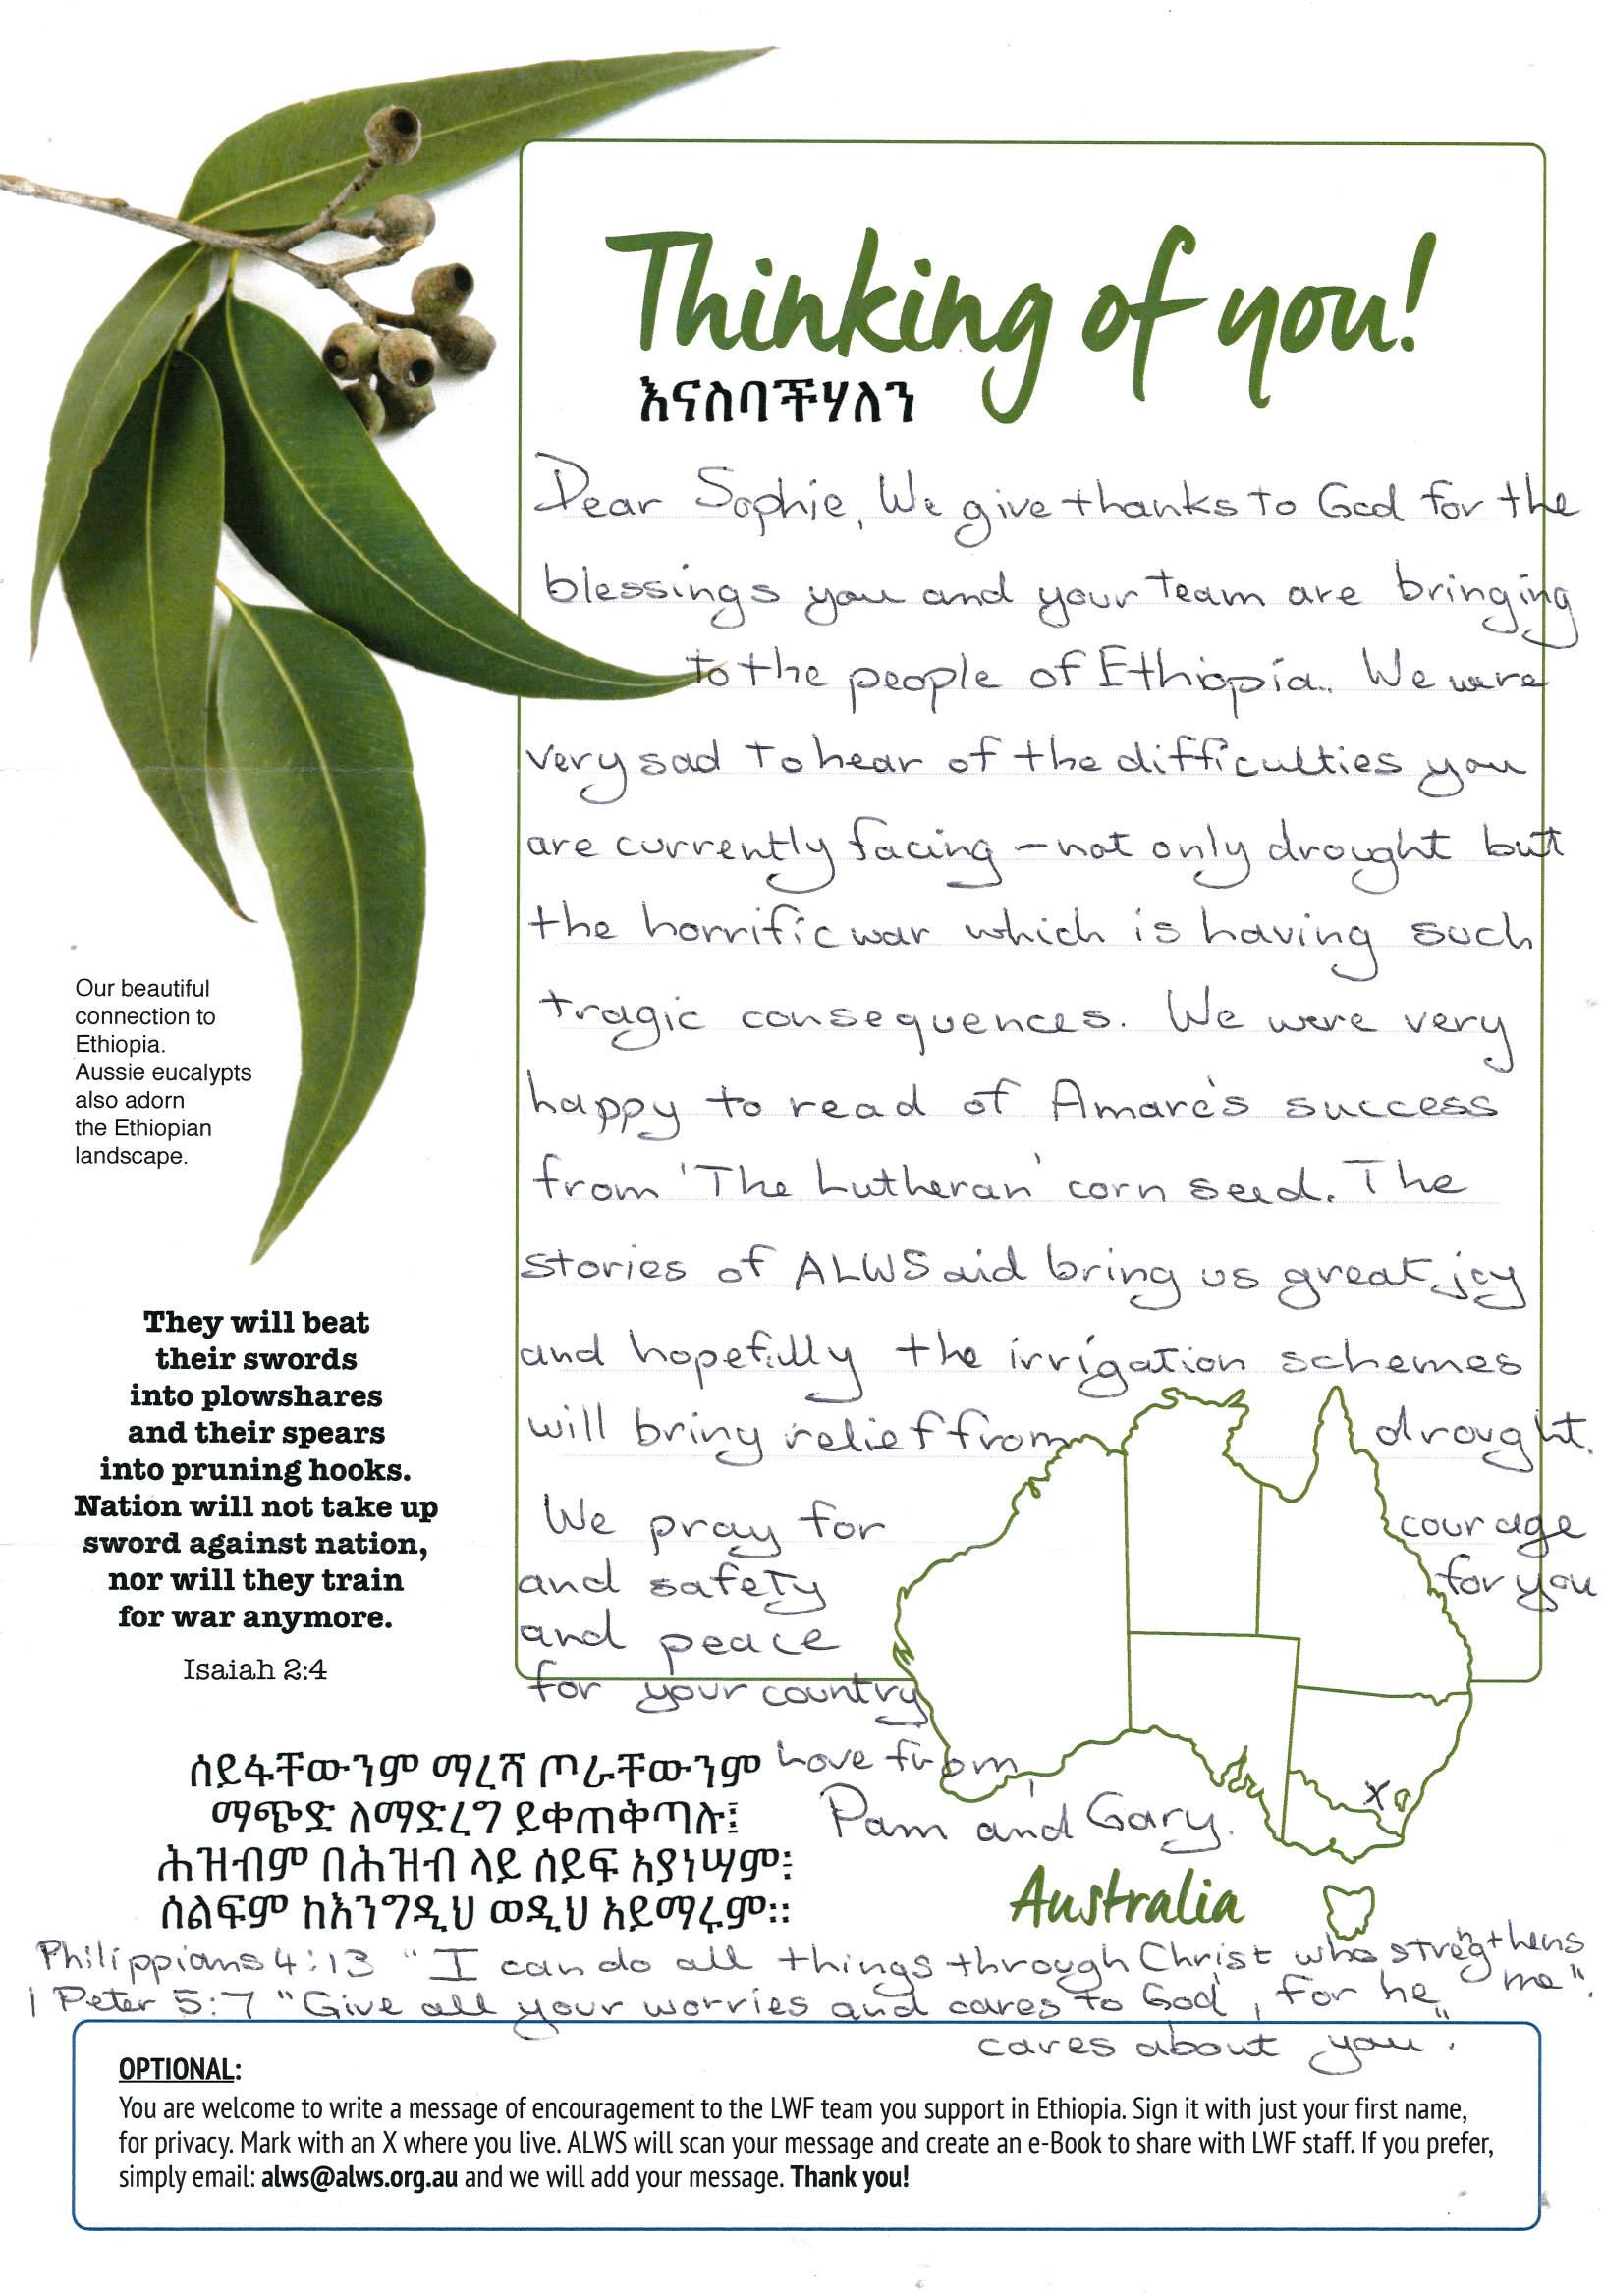 Thinking of you!
እናስባችሃለን
Dear Sophie, We give thanks to God for the
blessings you and your team are bringing
to the people of Ethiopia. We were
very sad to hear of the difficulties you
are currently facing - not only drought but
the horrific war which is having such
tragic consequences. We were very
happy to read of Amare's success
from 'The Lutheran' corn seed. The
stories of ALWS aid bring us great joy
and hopefully the irrigation schemes
will bring relief from drought.
We pray for courage
and safety for you
and peace
for your country
Love from,
Pam and Gary.
X
Australia
Our beautiful
connection to
Ethiopia.
Aussie eucalypts
also adorn
the Ethiopian
landscape.
They will beat
their swords
into plowshares
and their spears
into pruning hooks.
Nation will not take up
sword against nation,
nor will they train
for war anymore.
Isaiah 2:4
ሰይፋቸውንም ማረሻ ጦራቸውንም
ማጭድ ለማድረግ ይቀጠቅጣሉ፤
ሕዝብም በሕዝብ ላይ ሰይፍ አያነሣም፡
ሰልፍም ከእንግዲህ ወዲህ አይማሩም።
Philippians 4:13 "I can do all things through Christ who strengthens me".
1 Peter 5:7 "Give all your worries and cares to God, for he
cares about you".
OPTIONAL:
You are welcome to write a message of encouragement to the LWF team you support in Ethiopia. Sign it with just your first name,
for privacy. Mark with an X where you live. ALWS will scan your message and create an e-Book to share with LWF staff. If you prefer,
simply email: alws@alws.org.au and we will add your message. Thank you!